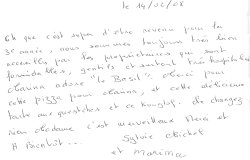 le 14/02/08
Oh que c'est super d'être revenue pour la
3e année, nous sommes toujours très bien
accueillis par les propriétaires qui sont
formidables, gentils et surtout très hospitaliers
adore "le Basil" Merci pour
cette pizza pour et cette délicieuse
tarte aux quetsches et ce kouglof. Ne changez
rien Madame c'est merveilleux Merci et
A Bientôt... Sylvie
et Marina